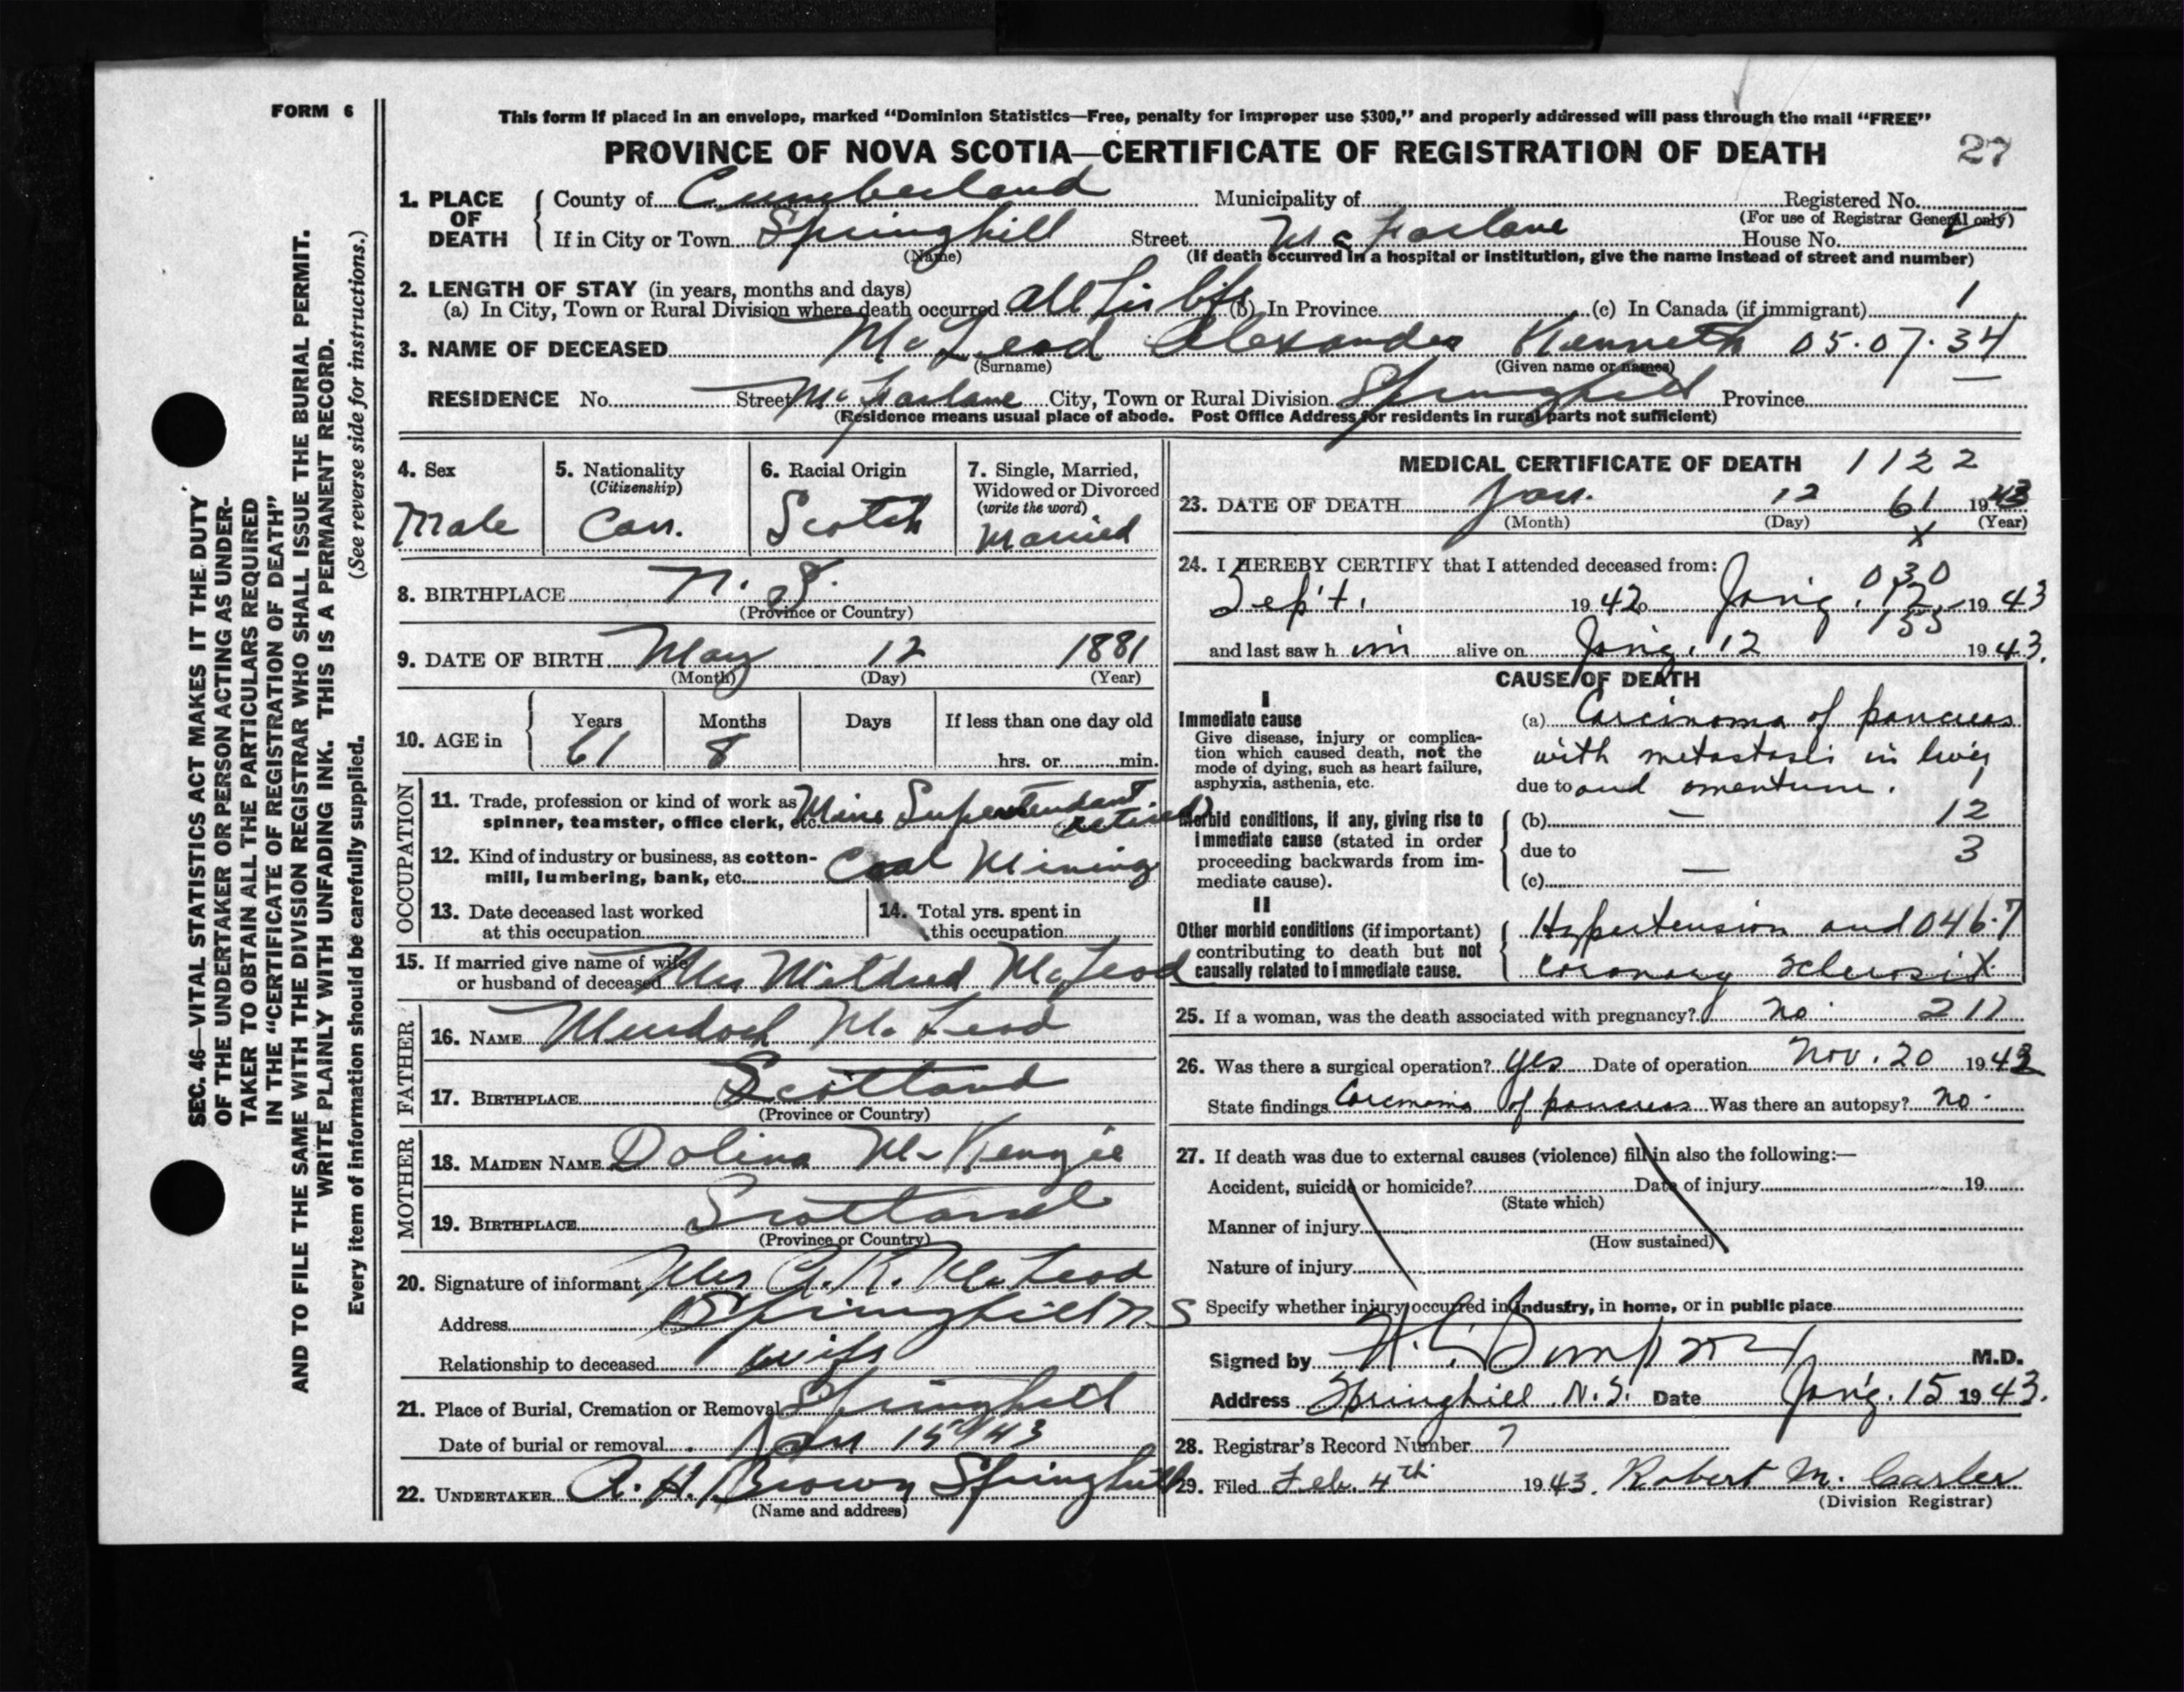 FORM 6
This form if placed in an envelope, marked "Dominion Statistics—Free, penalty for improper use $300," and properly addressed will pass through the mail "FREE"
PROVINCE OF NOVA SCOTIA—CERTIFICATE OF REGISTRATION OF DEATH 27
1. PLACE OF DEATH County of Cumberland Municipality of Registered No.
(For use of Registrar General only)
If in City or Town Springhill Street McFarlane House No.
(Name) (If death occurred in a hospital or institution, give the name instead of street and number)
2. LENGTH OF STAY (in years, months and days)
(a) In City, Town or Rural Division where death occurred all his life (b) In Province (c) In Canada (if immigrant) 1
3. NAME OF DECEASED McLeod Alexander Kenneth 05.07.34
(Surname) (Given name or names)
RESIDENCE No. Street McFarlane City, Town or Rural Division Springhill Province
(Residence means usual place of abode. Post Office Address for residents in rural parts not sufficient)
4. Sex Male
5. Nationality (Citizenship) Can.
6. Racial Origin Scotch
7. Single, Married, Widowed or Divorced (write the word) Married
8. BIRTHPLACE N.S.
(Province or Country)
9. DATE OF BIRTH May 12 1881
(Month) (Day) (Year)
10. AGE in Years Months Days If less than one day old
61 8 hrs. or min.
OCCUPATION
11. Trade, profession or kind of work as spinner, teamster, office clerk, etc. Mine Supertendant. retired
12. Kind of industry or business, as cotton-mill, lumbering, bank, etc. Coal Mining
13. Date deceased last worked at this occupation
14. Total yrs. spent in this occupation
15. If married give name of wife or husband of deceased Mrs Mildred McLeod
FATHER
16. NAME Murdoch McLeod
17. BIRTHPLACE Scotland
(Province or Country)
MOTHER
18. MAIDEN NAME Dolina McKenzie
19. BIRTHPLACE Scotland
(Province or Country)
20. Signature of informant Mrs A.K. McLeod
Address Springhill N S
Relationship to deceased wife
21. Place of Burial, Cremation or Removal Springhill
Date of burial or removal Jan 15/43
22. UNDERTAKER A. H. Brown Springhill
(Name and address)
MEDICAL CERTIFICATE OF DEATH 1122
23. DATE OF DEATH Jan. 12 61 1943
(Month) (Day) x (Year)
24. I HEREBY CERTIFY that I attended deceased from: 030
Sep't. 1942 to Jan'y. 12 1943
155
and last saw h im alive on Jan'y. 12 1943.
CAUSE OF DEATH
I
Immediate cause
Give disease, injury or complication which caused death, not the mode of dying, such as heart failure, asphyxia, asthenia, etc.
(a) Carcinoma of pancreas
with metastasis in liver
due to and omentum. 1
Morbid conditions, if any, giving rise to immediate cause (stated in order proceeding backwards from immediate cause).
(b) — 12
due to 3
(c) —
II
Other morbid conditions (if important) contributing to death but not causally related to immediate cause.
Hypertension and 046.7
coronary sclerosis x
25. If a woman, was the death associated with pregnancy? no 211
26. Was there a surgical operation? yes Date of operation Nov. 20 1942
State findings Carcinoma of pancreas Was there an autopsy? no.
27. If death was due to external causes (violence) fill in also the following:—
Accident, suicide or homicide? Date of injury 19
(State which)
Manner of injury
(How sustained)
Nature of injury
Specify whether injury occurred in industry, in home, or in public place
Signed by M.D.
Address Springhill N.S. Date Jan'y. 15 1943.
28. Registrar's Record Number 7
29. Filed Feb. 4th 1943. Robert M. Carter
(Division Registrar)
SEC. 46—VITAL STATISTICS ACT MAKES IT THE DUTY
OF THE UNDERTAKER OR PERSON ACTING AS UNDER-
TAKER TO OBTAIN ALL THE PARTICULARS REQUIRED
IN THE "CERTIFICATE OF REGISTRATION OF DEATH"
AND TO FILE THE SAME WITH THE DIVISION REGISTRAR WHO SHALL ISSUE THE BURIAL PERMIT.
WRITE PLAINLY WITH UNFADING INK. THIS IS A PERMANENT RECORD.
Every item of information should be carefully supplied. (See reverse side for instructions.)